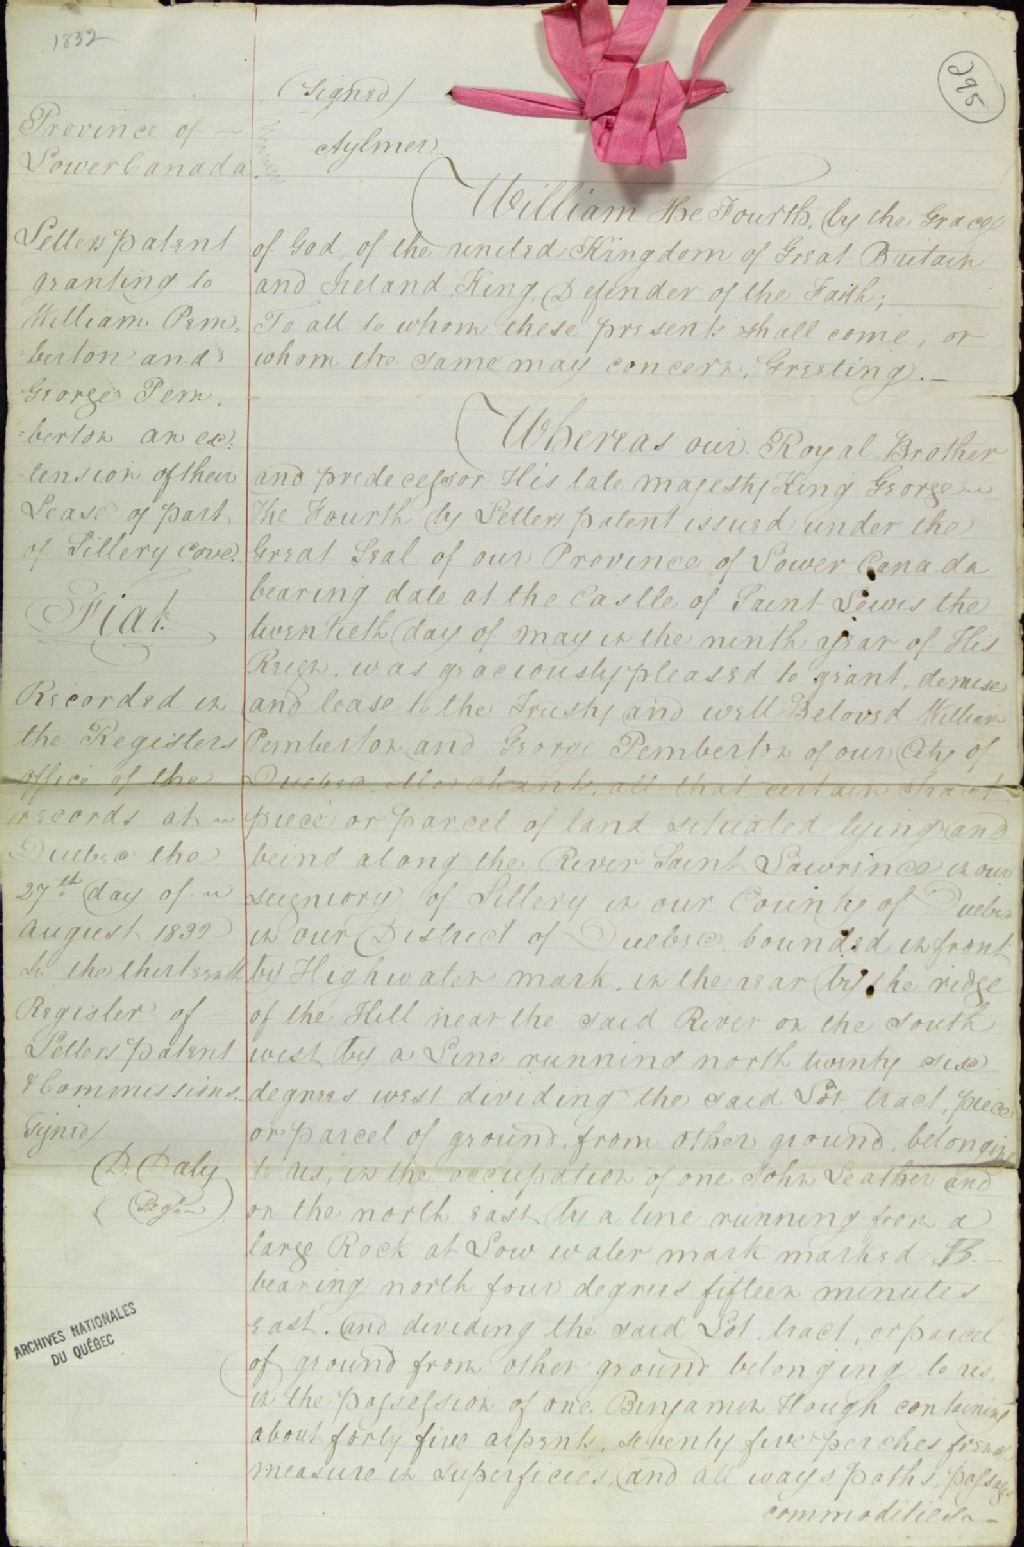 1832
295
(Signed)
Aylmer
Province of
Lower Canada
Letters patent
granting to
William Pem
-berton and
George Pem
-berton an ex
-tension of their
Lease of part
of Sillery Cove.
Fiat.
Recorded in
the Registers
office of the
records at
Quebec the
27th day of
August 1832
In the thirteenth
Register of
Letters patent
& Commissions.
Signed/
D. Daly
ARCHIVES NATIONALES
DU QUÉBEC
William the Fourth, by the Grace
of God, of the united Kingdom of Great Britain
and Ireland King, Defender of the Faith;
To all to whom these presents shall come, or
whom the same may concern, Greeting.—
Whereas our Royal Brother
and predecessor His late majesty King George
the Fourth by Letters patent issued under the
Great Seal of our Province of Lower Canada
bearing date at the Castle of Saint Lewis the
twentieth day of May in the ninth year of His
Reign. was graciously pleased to grant, demise
and lease to the Trusty and well Beloved William
Pemberton and George Pemberton of our City of
Quebec. Merchants, all that certain tract
piece or parcel of land situated lying and
being along the River Saint Lawrence in our
seigniory of Sillery in our County of Quebec
in our District of Quebec, bounded in front
by Highwater mark, in the rear by the ridge
of the Hill near the said River on the south
west by a Line running north twenty six
degrees west dividing the said Lot, tract, piece
or parcel of ground, from other ground, belonging
to us, in the occupation of one John Leather and
on the north east by a line running from a
large Rock at Low water mark marked B.
bearing north four degrees fifteen minutes
east. and dividing the said Lot, tract, or parcel
of ground from other ground belonging to us,
in the possession of one Benjamin Hough containing
about forty five arpents, seventy five perches french
measure in superficies, and all ways, paths, passages
commodities